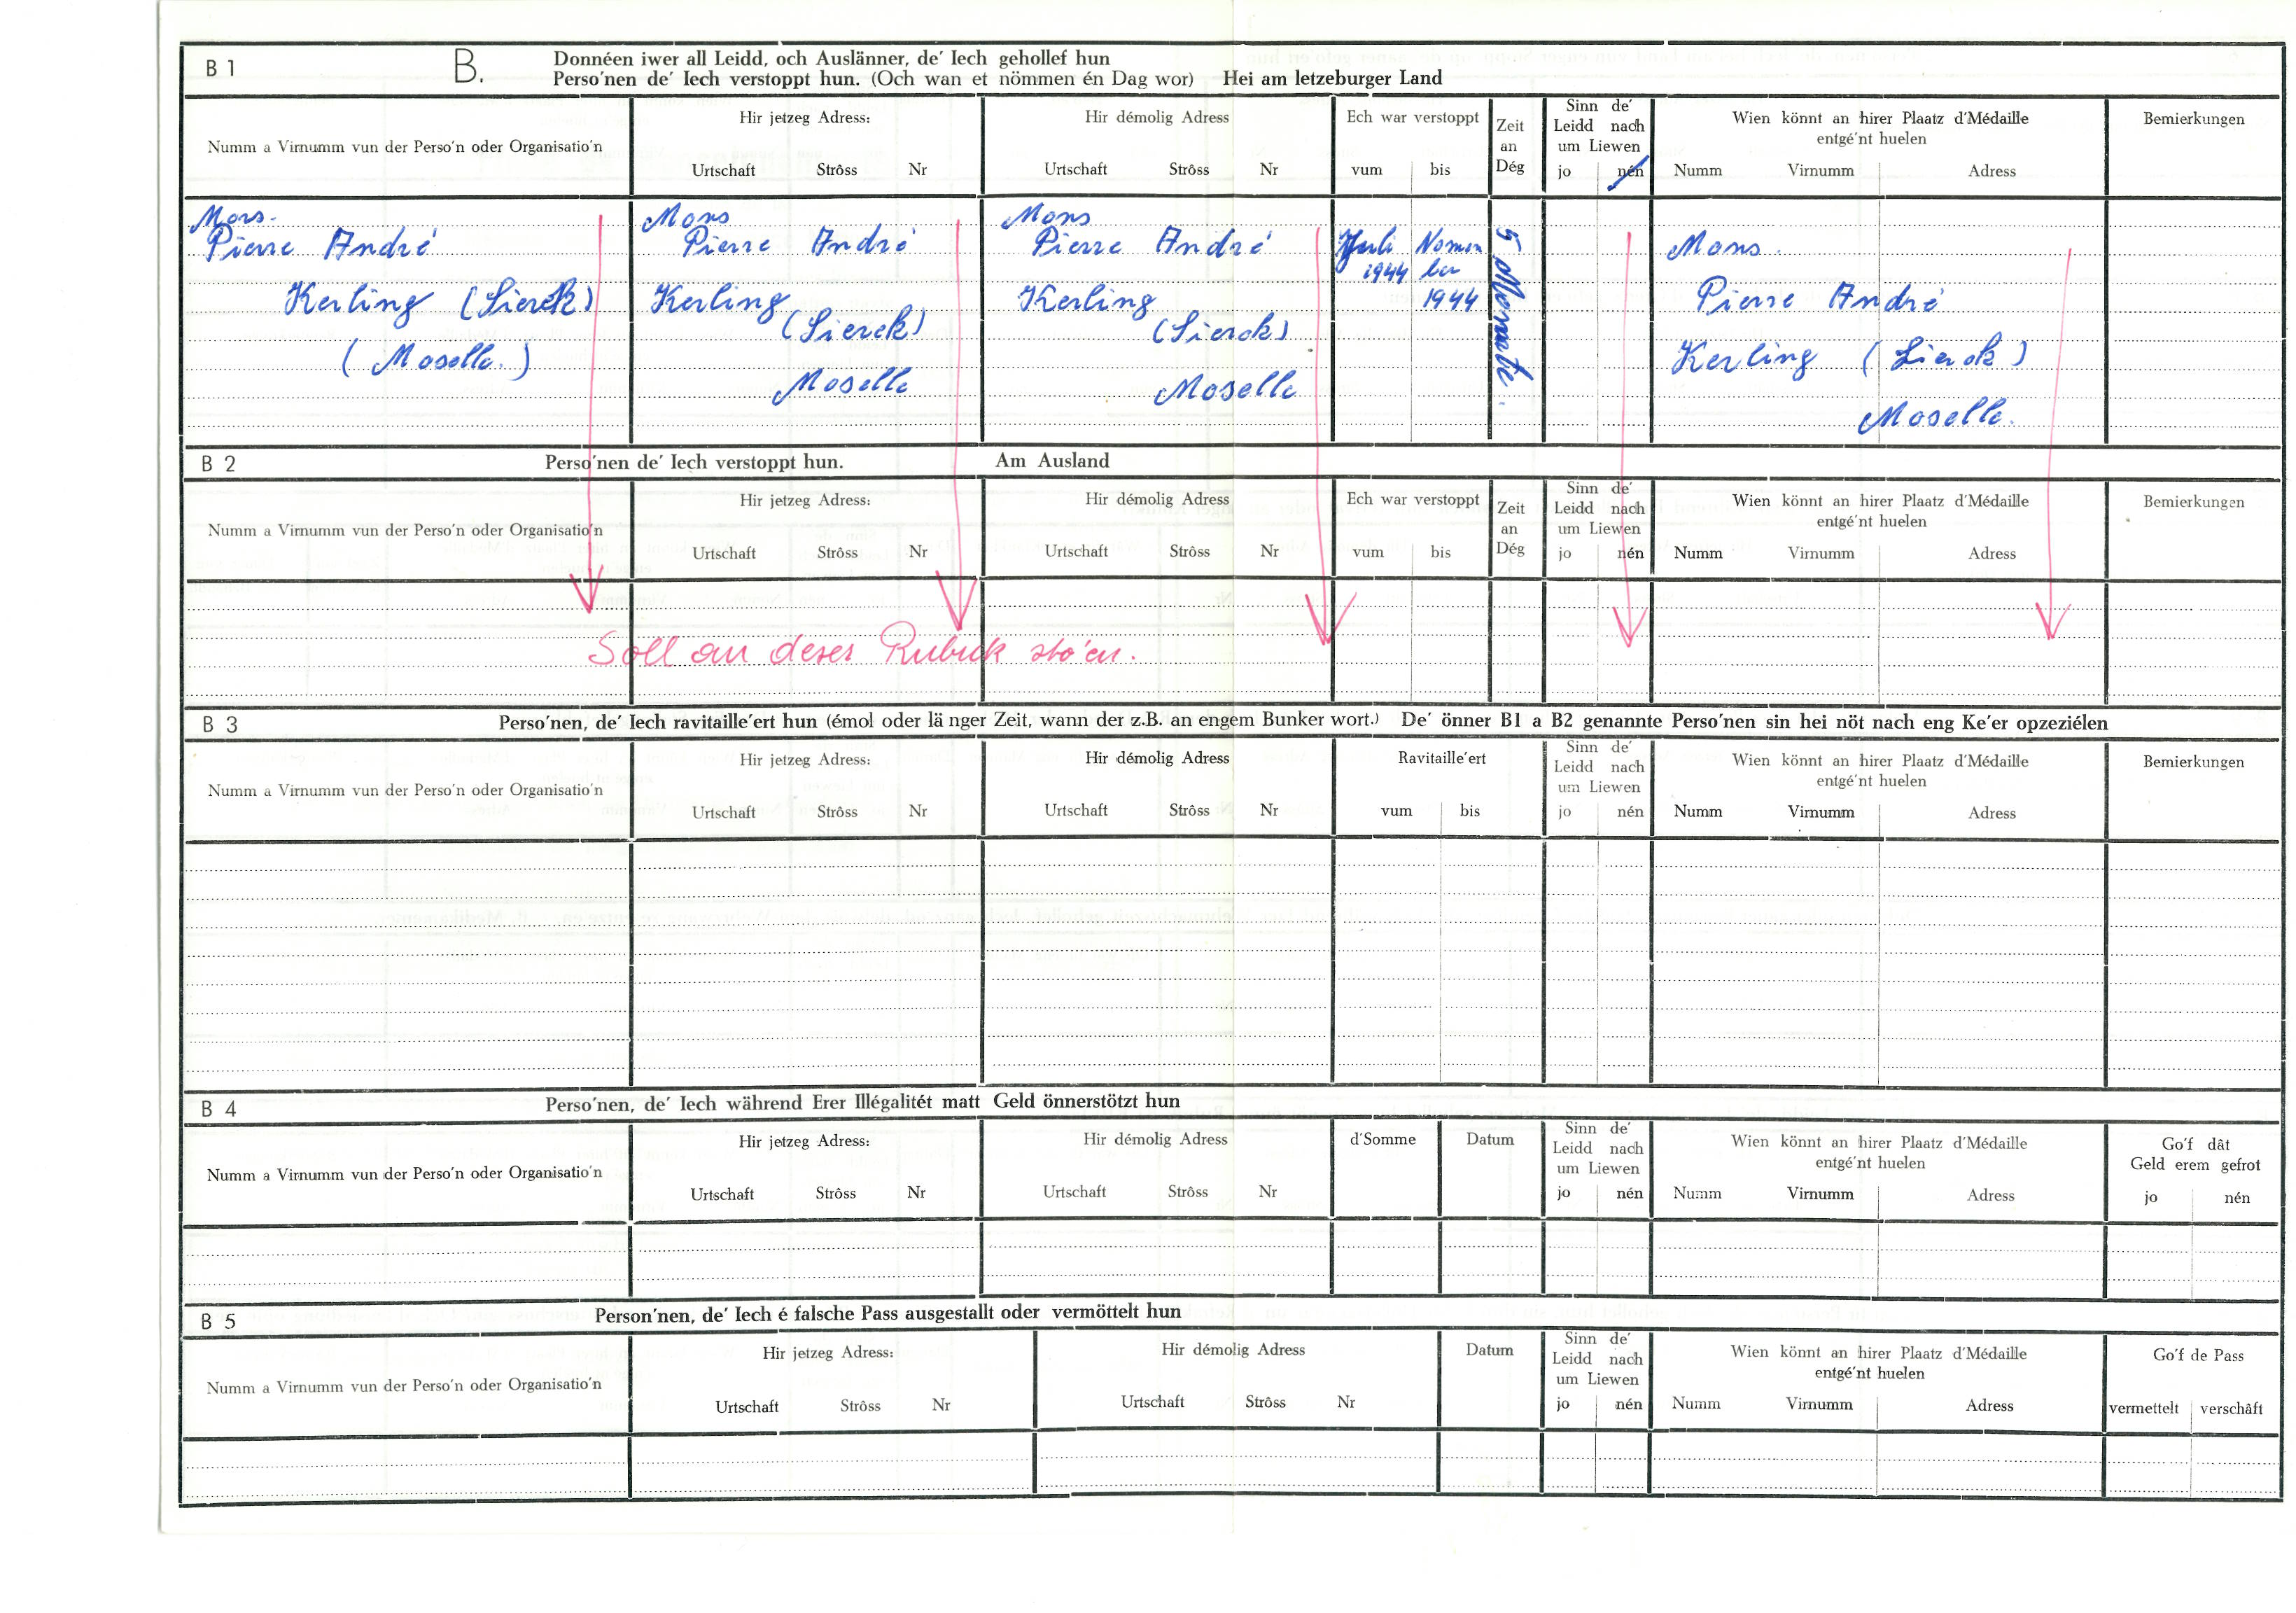 B 1
B.
Donnéen iwer all Leidd, och Auslänner, de' Iech gehollef hun
Perso'nen de' Iech verstoppt hun. (Och wan et nömmen én Dag wor) Hei am letzeburger Land
Numm a Virnumm vun der Perso'n oder Organisatio'n
Hir jetzeg Adress:
Urtschaft Strôss Nr
Hir démolig Adress
Urtschaft Strôss Nr
Ech war verstoppt
vum bis
Zeit
an
Dég
Sinn de'
Leidd nach
um Liewen
jo nén
Wien könnt an hirer Plaatz d'Médaille
entgé'nt huelen
Numm Virnumm Adress
Bemierkungen
Mons.
Pierre André
Kerling (Sierck)
(Moselle.)
Mons
Pierre André
Kerling
(Sierck)
Moselle
Mons
Pierre André
Kerling
(Sierck)
Moselle
Juli
1944
Novem
ber
1944
5 Monate.
Mons.
Pierre André
Kerling (Sierck)
Moselle.
B 2
Perso'nen de' Iech verstoppt hun. Am Ausland
Numm a Virnumm vun der Perso'n oder Organisatio'n
Hir jetzeg Adress:
Urtschaft Strôss Nr
Hir démolig Adress
Urtschaft Strôss Nr
Ech war verstoppt
vum bis
Zeit
an
Dég
Sinn de'
Leidd nach
um Liewen
jo nén
Wien könnt an hirer Plaatz d'Médaille
entgé'nt huelen
Numm Virnumm Adress
Bemierkungen
Soll an deser Rubrik sto'en.
B 3
Perso'nen, de' Iech ravitaille'ert hun (émol oder lä nger Zeit, wann der z.B. an engem Bunker wort.) De' önner B1 a B2 genannte Perso'nen sin hei nöt nach eng Ke'er opzeziélen
Numm a Virnumm vun der Perso'n oder Organisatio'n
Hir jetzeg Adress:
Urtschaft Strôss Nr
Hir démolig Adress
Urtschaft Strôss Nr
Ravitaille'ert
vum bis
Sinn de'
Leidd nach
um Liewen
jo nén
Wien könnt an hirer Plaatz d'Médaille
entgé'nt huelen
Numm Virnumm Adress
Bemierkungen
B 4
Perso'nen, de' Iech während Erer Illégalitét matt Geld önnerstötzt hun
Numm a Virnumm vun der Perso'n oder Organisatio'n
Hir jetzeg Adress:
Urtschaft Strôss Nr
Hir démolig Adress
Urtschaft Strôss Nr
d'Somme
Datum
Sinn de'
Leidd nach
um Liewen
jo nén
Wien könnt an hirer Plaatz d'Médaille
entgé'nt huelen
Numm Virnumm Adress
Go'f dât
Geld erem gefrot
jo nén
B 5
Person'nen, de' Iech é falsche Pass ausgestallt oder vermöttelt hun
Numm a Virnumm vun der Perso'n oder Organisatio'n
Hir jetzeg Adress:
Urtschaft Strôss Nr
Hir démolig Adress
Urtschaft Strôss Nr
Datum
Sinn de'
Leidd nach
um Liewen
jo nén
Wien könnt an hirer Plaatz d'Médaille
entgé'nt huelen
Numm Virnumm Adress
Go'f de Pass
vermettelt verschâft